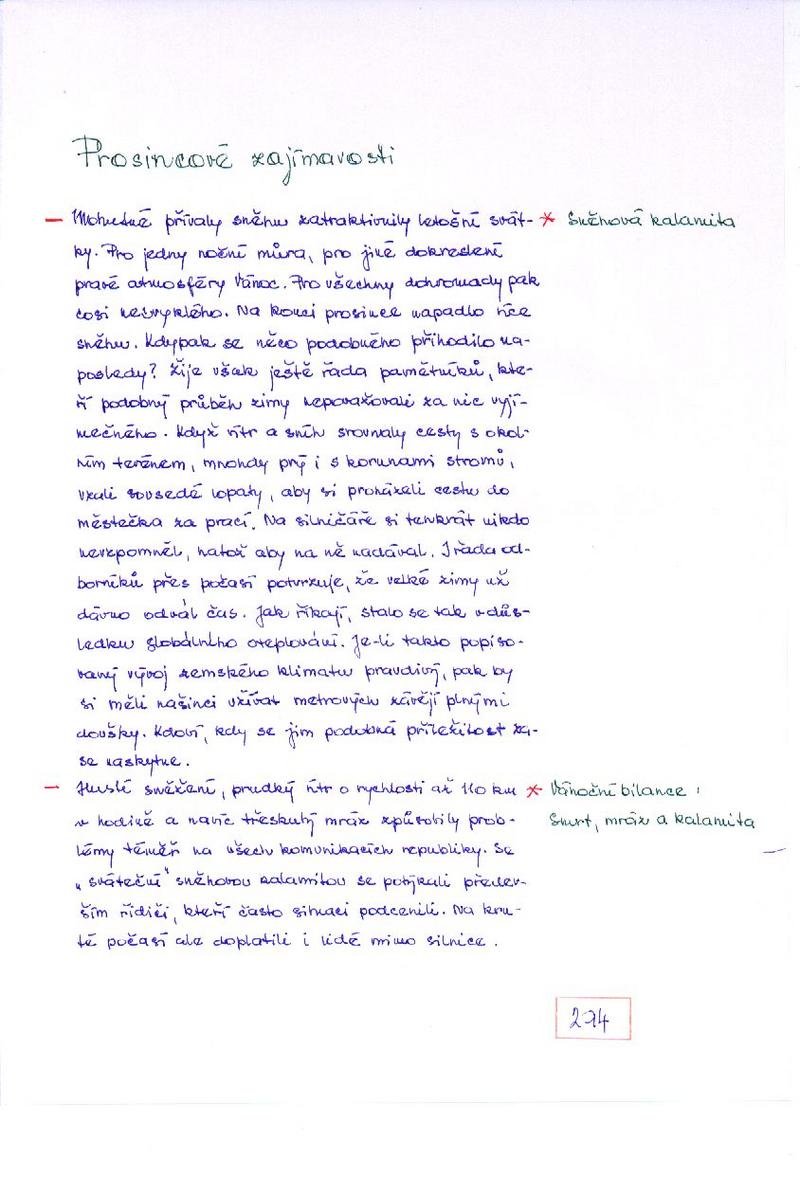 Prosincové zajímavosti
– Mohutné přívaly sněhu zatraktivnily letošní svát- * Sněhová kalamita
ky. Pro jedny noční můra, pro jiné dokreslení
pravé atmosféry Vánoc. Pro všechny dohromady pak
cosi nezvyklého. Na konci prosince napadlo více
sněhu. Kdypak se něco podobného přihodilo na-
posledy? Žije však ještě řada pamětníků, kte-
ří podobný průběh zimy nepovažovali za nic vyjí-
mečného. Když vítr a sníh srovnaly cesty s okol-
ním terénem, mnohdy prý i s korunami stromů,
vzali sousedé lopaty, aby si proházeli cestu do
městečka za prací. Na silničáře si tenkrát nikdo
nevzpomněl, natož aby na ně nadával. I řada od-
borníků přes počasí potvrzuje, že velké zimy už
dávno odvál čas. Jak říkají, stalo se tak v důs-
ledku globálního oteplování. Je-li takto popiso-
vaný vývoj zemského klimatu pravdivý, pak by
si měli našinci užívat metrových závějí plnými
doušky. Kdoví, kdy se jim podobná příležitost za-
se naskytne.
– Husté sněžení, prudký vítr o rychlosti až 110 km * Vánoční bilance:
v hodině a navíc třeskutý mráz způsobily prob- Smrt, mráz a kalamita
lémy téměř na všech komunikacích republiky. Se
„sváteční" sněhovou kalamitou se potýkali předev-
ším řidiči, kteří často situaci podcenili. Na kru-
té počasí ale doplatili i lidé mimo silnice.
294